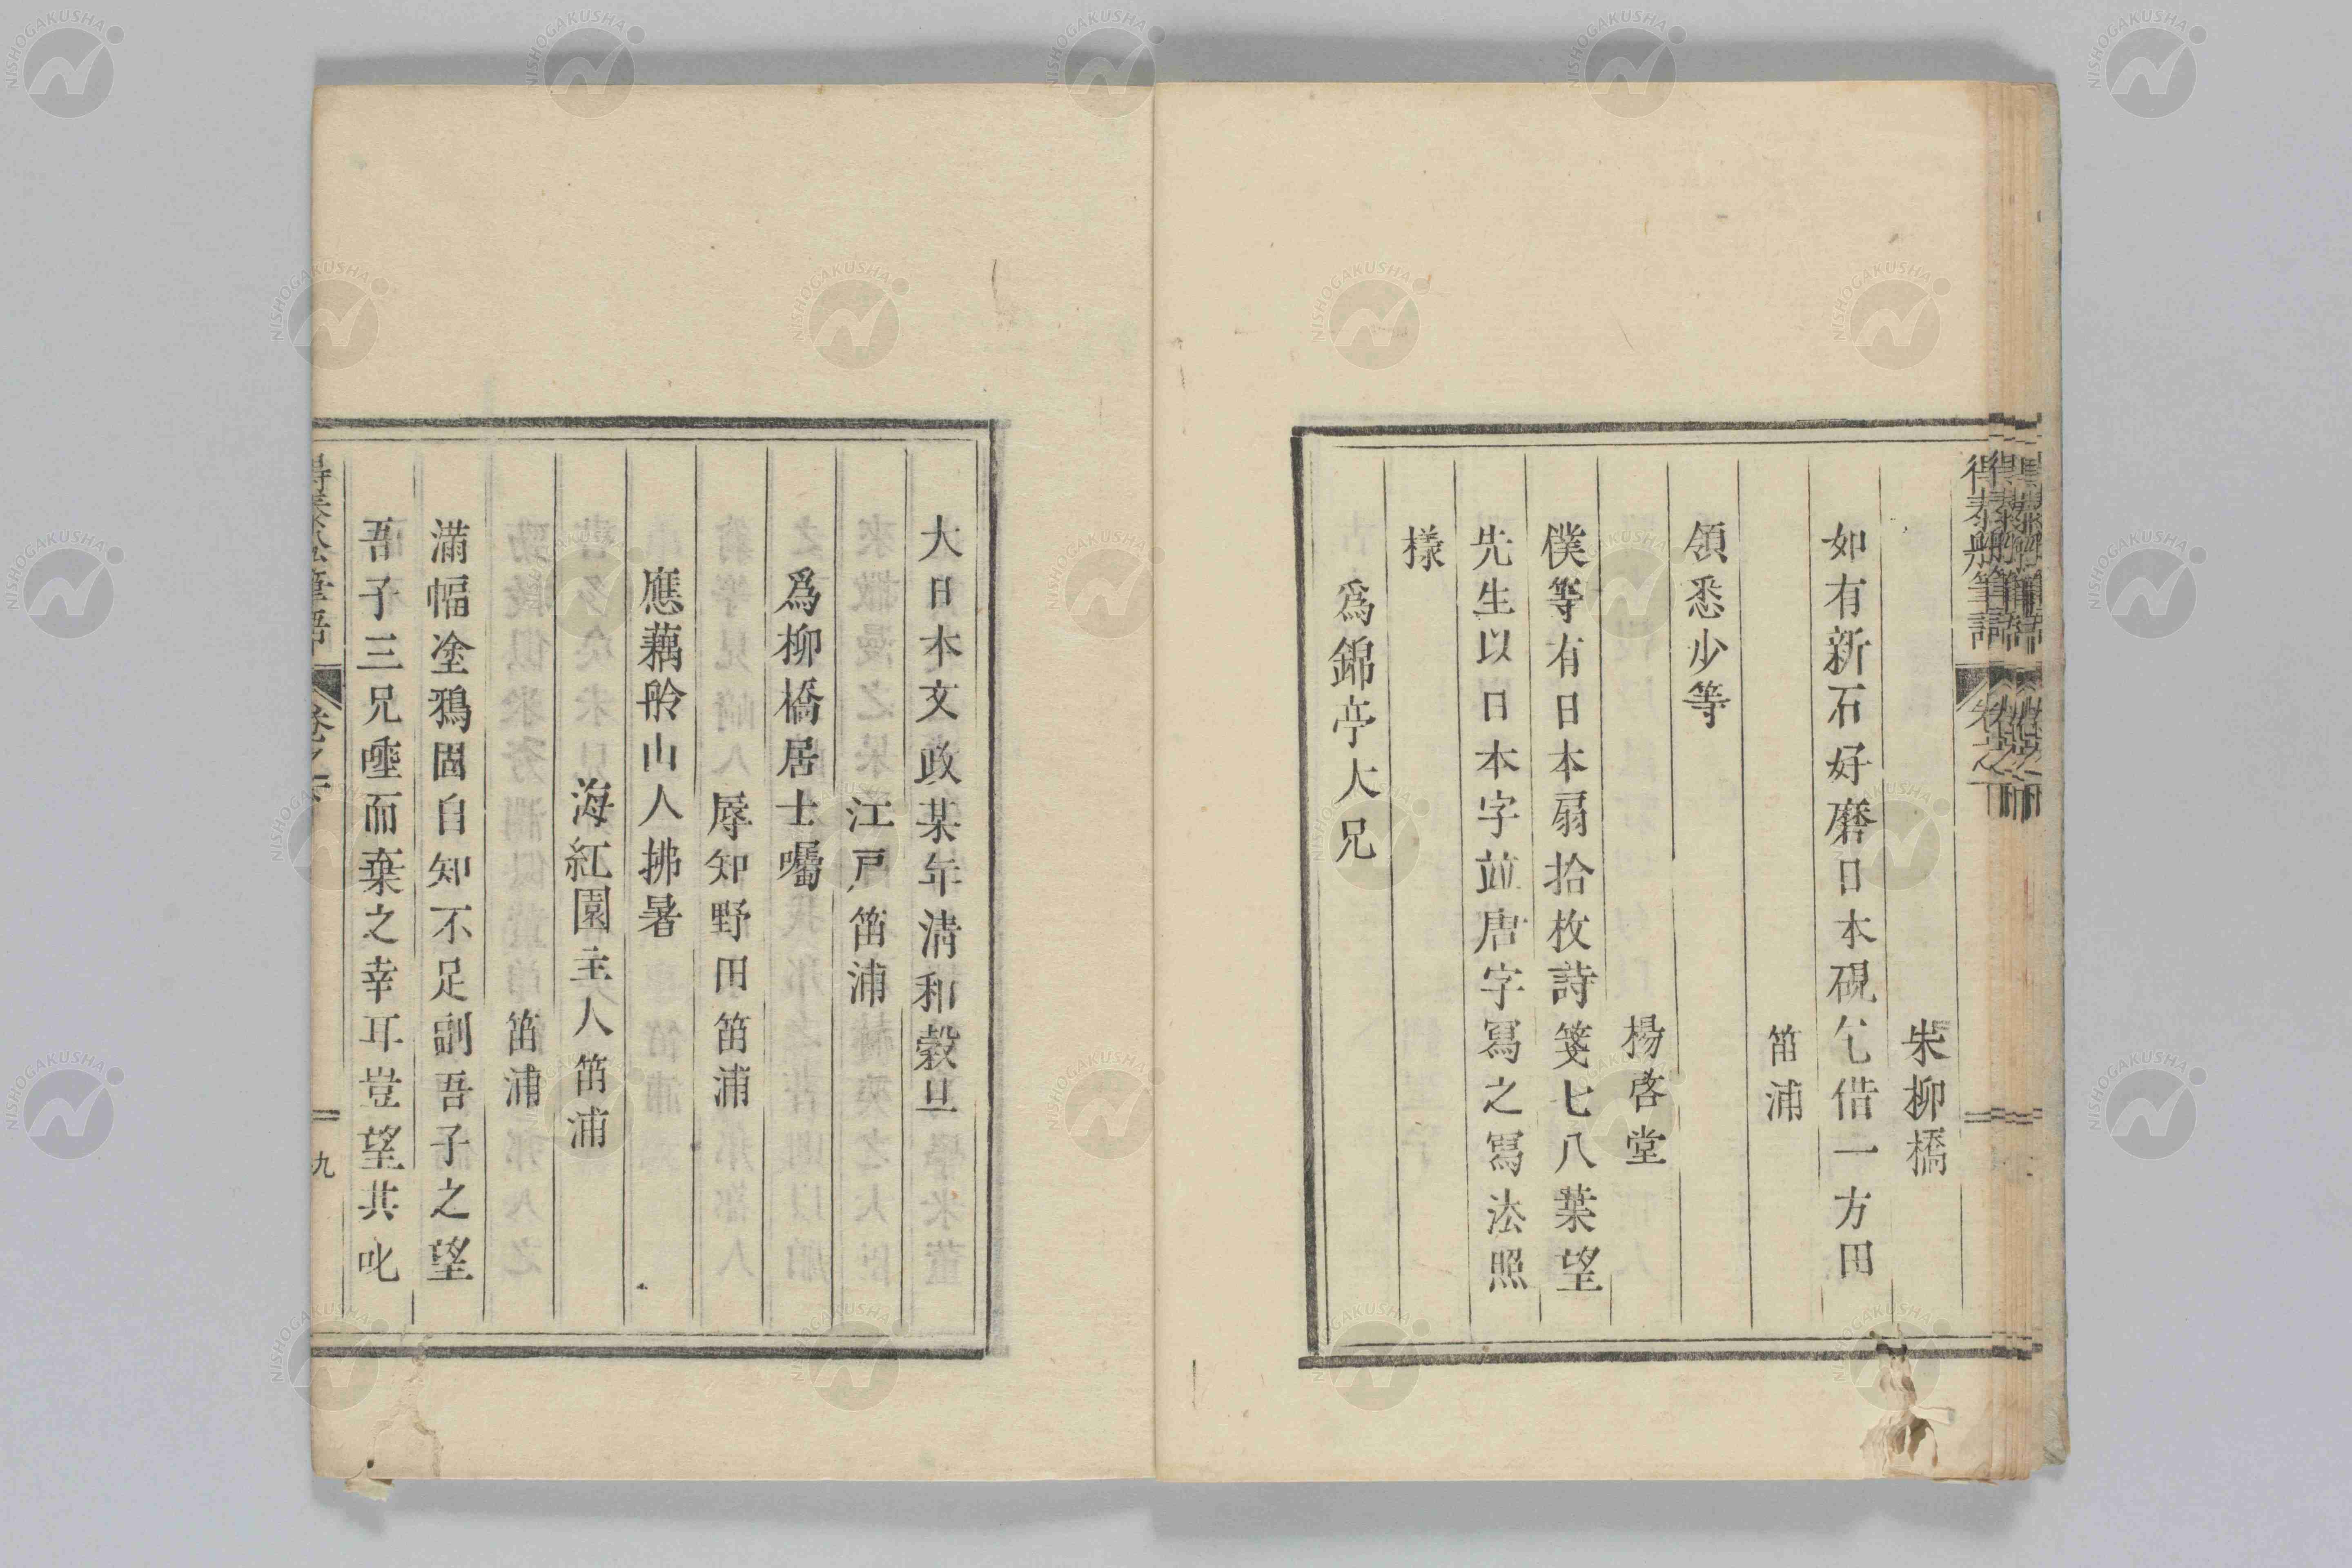 朱柳橋
如有新石好磨日本硯乞借一方田
笛浦
領悉少等
楊啓堂
僕等有日本扇拾枚詩箋七八葉望
先生以日本字並唐字寫之寫法照
樣
爲錦亭大兄
大日本文政某年清和穀旦
江戸笛浦
爲柳橋居士囑
辱知野田笛浦
應藕舲山人拂暑
海紅園主人笛浦
笛浦
滿幅塗鴉固自知不足副吾子之望
吾子三兄唾而棄之幸耳豈望其叱
九